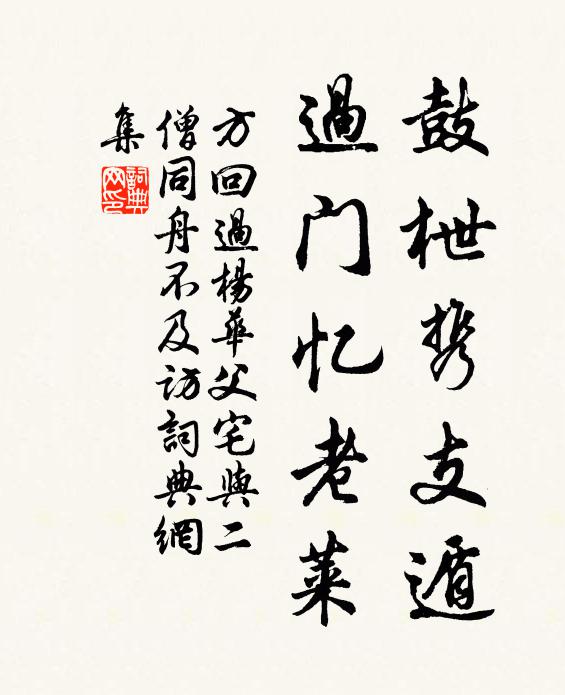 鼓枻携支遁
過门忆老莱
方回過楊華父宅與二
僧同舟不及访詞典網
集
詞典网印